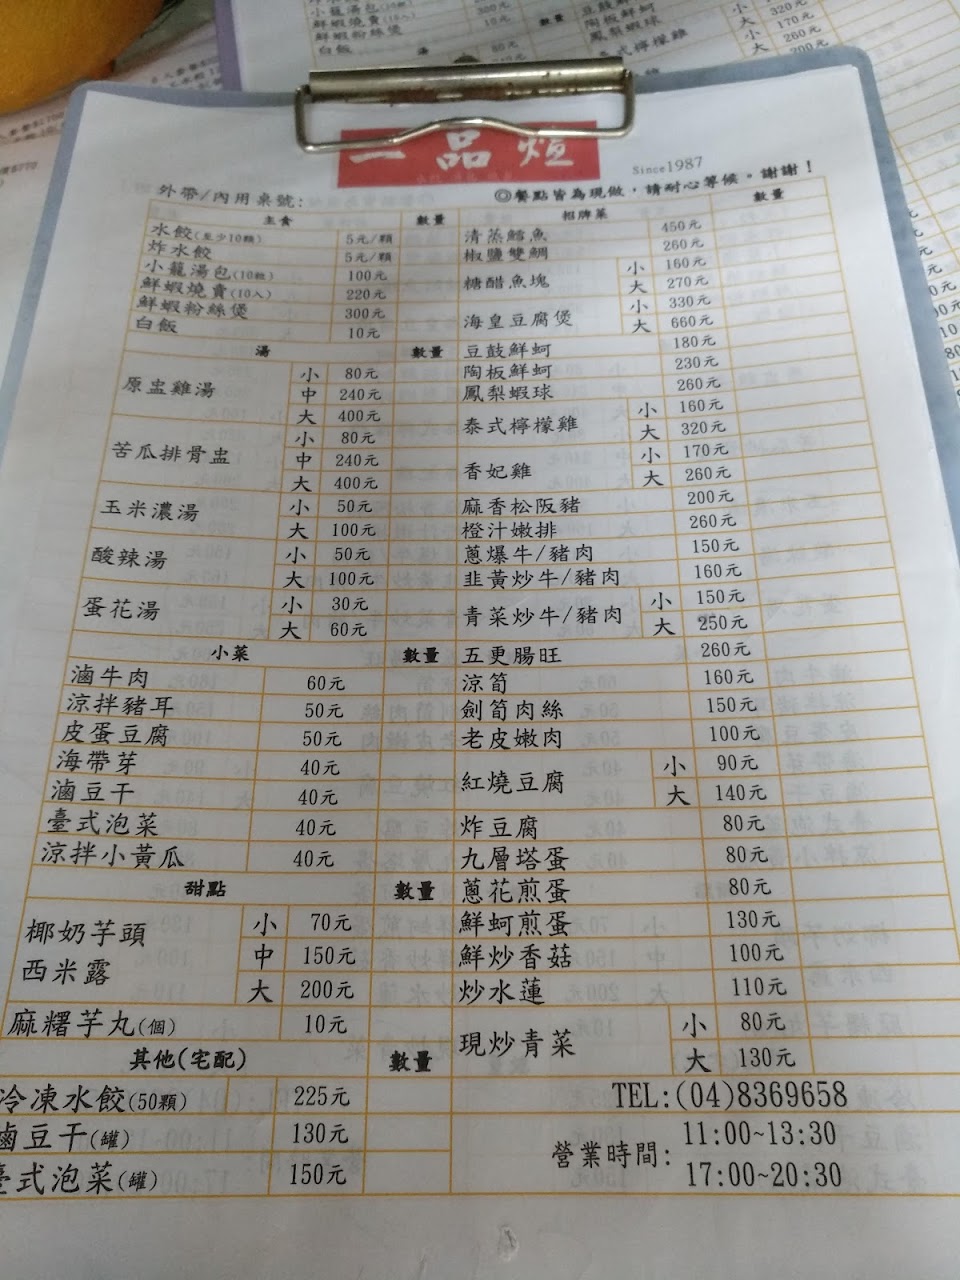 一品煊
Since1987
外帶/內用桌號:
◎餐點皆為現做，請耐心等候。謝謝！
主食 數量
水餃(至少10顆) 5元/顆
炸水餃 5元/顆
小籠湯包(10粒) 100元
鮮蝦燒賣(10入) 220元
鮮蝦粉絲煲 300元
白飯 10元
湯 數量
原盅雞湯 小 80元
中 240元
大 400元
苦瓜排骨盅 小 80元
中 240元
大 400元
玉米濃湯 小 50元
大 100元
酸辣湯 小 50元
大 100元
蛋花湯 小 30元
大 60元
小菜 數量
滷牛肉 60元
涼拌豬耳 50元
皮蛋豆腐 50元
海帶芽 40元
滷豆干 40元
臺式泡菜 40元
涼拌小黃瓜 40元
甜點 數量
椰奶芋頭
西米露
小 70元
中 150元
大 200元
麻糬芋丸(個) 10元
其他(宅配) 數量
冷凍水餃(50顆) 225元
滷豆干(罐) 130元
臺式泡菜(罐) 150元
招牌菜 數量
清蒸鱈魚 450元
椒鹽雙鯛 260元
糖醋魚塊 小 160元
大 270元
海皇豆腐煲 小 330元
大 660元
豆鼓鮮蚵 180元
陶板鮮蚵 230元
鳳梨蝦球 260元
泰式檸檬雞 小 160元
大 320元
香妃雞 小 170元
大 260元
麻香松阪豬 200元
橙汁嫩排 260元
蔥爆牛/豬肉 150元
韭黃炒牛/豬肉 160元
青菜炒牛/豬肉 小 150元
大 250元
五更腸旺 260元
涼筍 160元
劍筍肉絲 150元
老皮嫩肉 100元
紅燒豆腐 小 90元
大 140元
炸豆腐 80元
九層塔蛋 80元
蔥花煎蛋 80元
鮮蚵煎蛋 130元
鮮炒香菇 100元
炒水蓮 110元
現炒青菜 小 80元
大 130元
TEL:(04)8369658
營業時間: 11:00~13:30
17:00~20:30